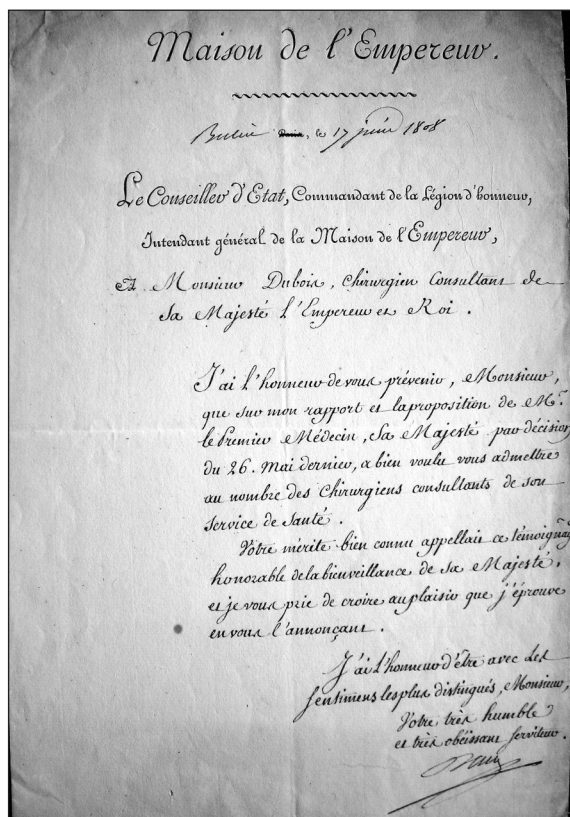 Maison de l'Empereur.
Berlin, le 17 juin 1808
Le Conseiller d'Etat, Commandant de la Légion d'honneur,
Intendant général de la Maison de l'Empereur,
A Monsieur Dubois, Chirurgien Consultant de
Sa Majesté l'Empereur et Roi.
J'ai l'honneur de vous prévenir, Monsieur,
que sur mon rapport et la proposition de Mr.
le Premier Médecin, Sa Majesté par décision
du 26. Mai dernier, a bien voulu vous admettre
au nombre des Chirurgiens consultants de son
Service de Santé.
Votre mérite bien connu appellait ce témoignag
honorable de la bienveillance de Sa Majesté.
et je vous prie de croire au plaisir que j'éprouve
en vous l'annonçant.
J'ai l'honneur d'être avec des
sentimens les plus distingués, Monsieur,
Votre très humble
et très obéissant serviteur.
Daru